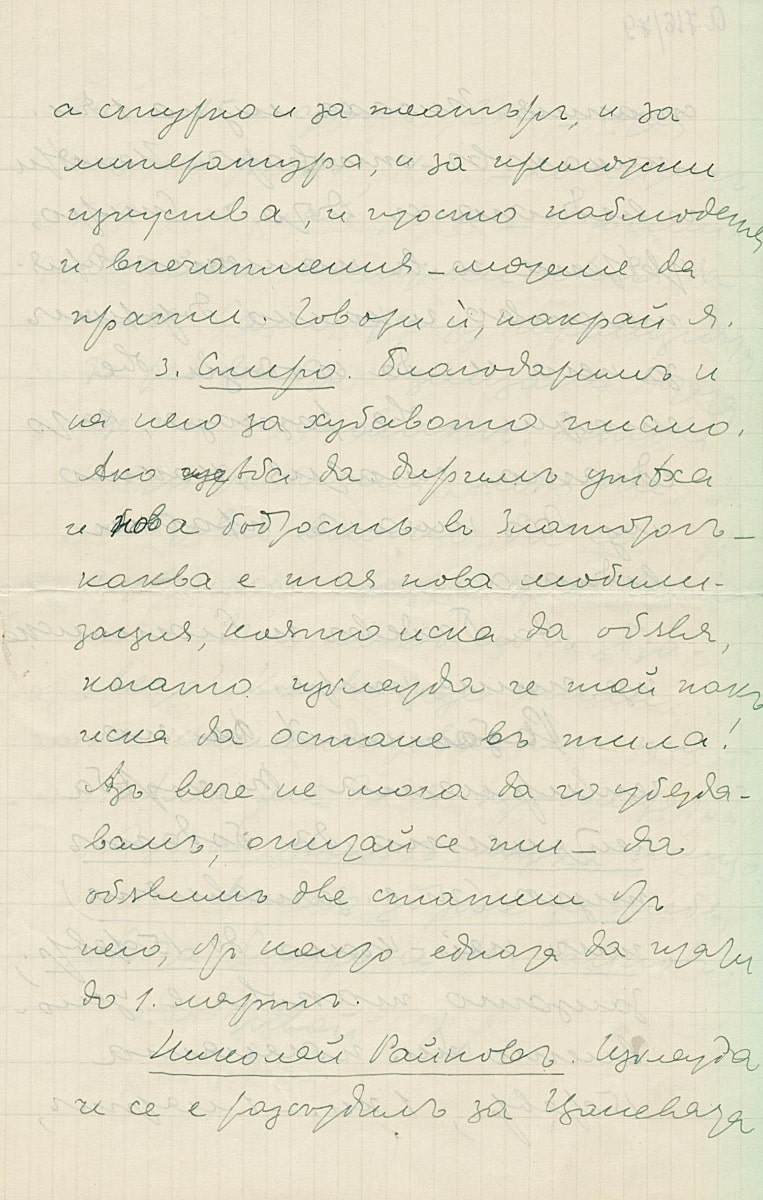 а сигурно и за театъръ, и за
литература, и за приложни
изкуства, и просто наблюдения
и впечатления – можеше да
прати. Говори ѝ, накрай я.
3. Спиро. Благодаримъ и
на него за хубавото писмо.
Ако трѣба да диримъ утѣха
и нова бодрость въ Златорогъ –
каква е тая нова мобили-
зация, която иска да обявя,
когато изглежда че той пакъ
иска да остане въ тила!
Азъ вече не мога да го убежда-
вамъ, опитай се ти – да
обявимъ две статии отъ
него, отъ които едната да прати
до 1. мартъ.
Николай Райновъ. Изглежда
че се е разсърдилъ за Цаневата